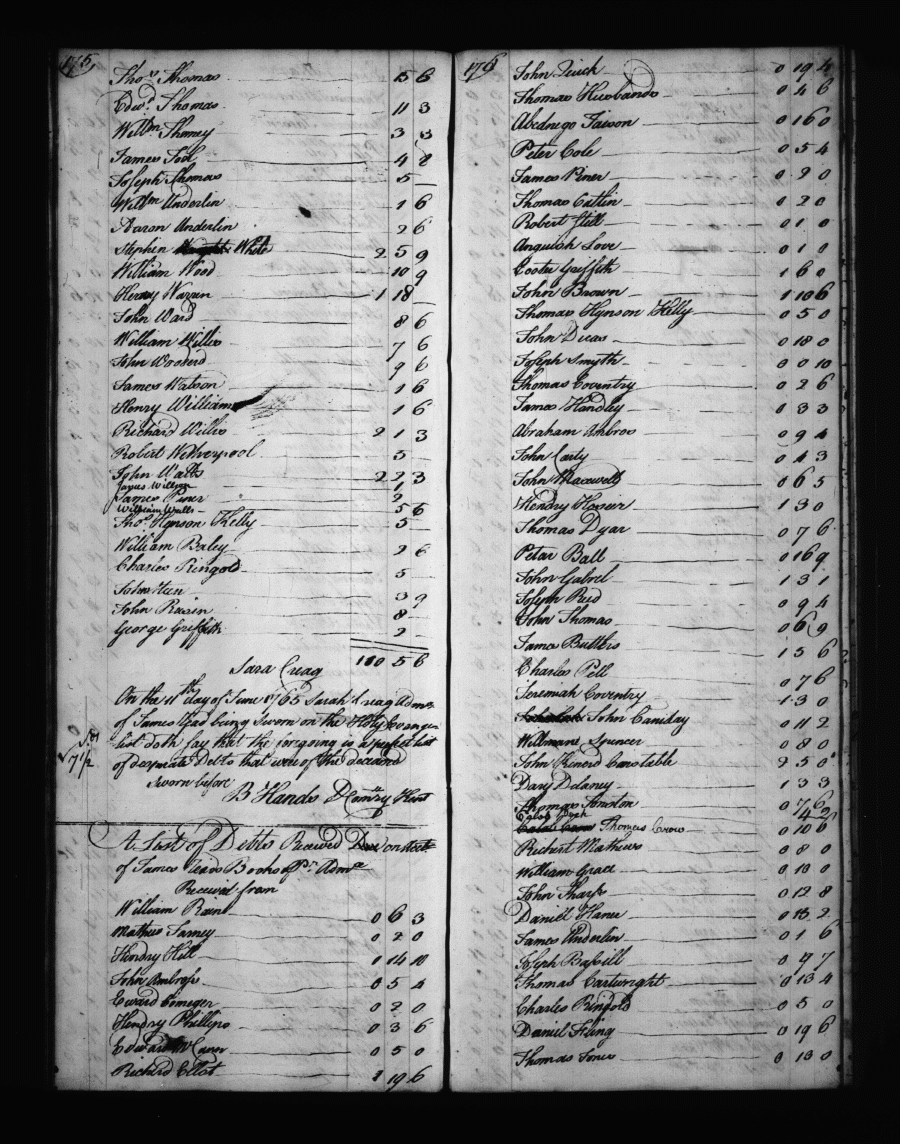 175
Thos. Thomas 15 6
Edwd. Thomas 11 3
Willm 3 3
James 4 2
Joseph Thomas 5
Willm Underlin 1 6
Aaron Underlin 2 6
Stephen White 2 5 9
William Wood 10 9
Henry Warren 1 18
John Ward 8 6
William Willis 7 6
John 9 6
James Watson 1 6
Henry Williams 1 6
Richard Willis 2 1 3
Robert 5
John Watts 2 2 3
James Piner 2
William Walls 5 6
Thos. Hynson Kelly 5
William Baley 2 6
Charles Ringold 5
John 3 9
John Rasin 8
George Griffith 2
110 5 6
Sara Creag
On the 11th day of June 1765 Sarah Creag Admx
of James being Sworn on the Holy Evange-
list doth say that the foregoing is a perfect list
of desperate Debts that were of the deceased
Sworn before
B Hands Kent
A List of Debts Received on
of James Books Pr. Admx
Received from
William 0 6 3
Mathew 0 2 0
Hendry Hill 0 14 10
John Ambross 0 5 4
Edward Comeger 0 2 0
Hendry Phillips 0 3 6
Edward 0 5 0
Richard Ellot 1 19 6
176
John 0 19 4
Thomas Husbands 0 4 6
Abednego 0 16 0
Peter Cole 0 5 4
James Piner 0 2 0
Thomas Catlin 0 2 0
Robert Still 0 1 0
Anguish Love 0 1 0
Griffith 1 6 0
John Brown 1 10 6
Thomas Hynson Kelly 0 5 0
John Dicas 0 18 0
Joseph Smyth 0 0 10
Thomas Coventry 0 2 6
James Handley 0 3 3
Abraham Ambros 0 9 4
John Carty 0 4 3
John Maxwell 0 6 5
Hendry Hosier 1 3 0
Thomas Dyar 0 7 6
Petar Ball 0 16 9
John Gabrel 1 3 1
Joseph Reed 0 9 4
John Thomas 0 6 9
James Butlers 1 5 6
Charles Pell 0 7 6
Jeremiah Coventry 1 3 0
John Caniday 0 11 2
Spencer 0 8 0
John Kinerd Constable 2 5 0
Davy Delaney 1 3 3
Thomas 0 7 6
14 2
Thomas Crow 0 10 6
Richart Mathews 0 8 0
William Grace 0 10 0
John Sharp 0 12 8
Daniel 0 15 2
James Underlin 0 1 6
Joseph 0 4 7
Thomas Cartwright 0 13 4
Charles Ringold 0 5 0
Daniel 0 19 6
Thomas Jones 0 13 0